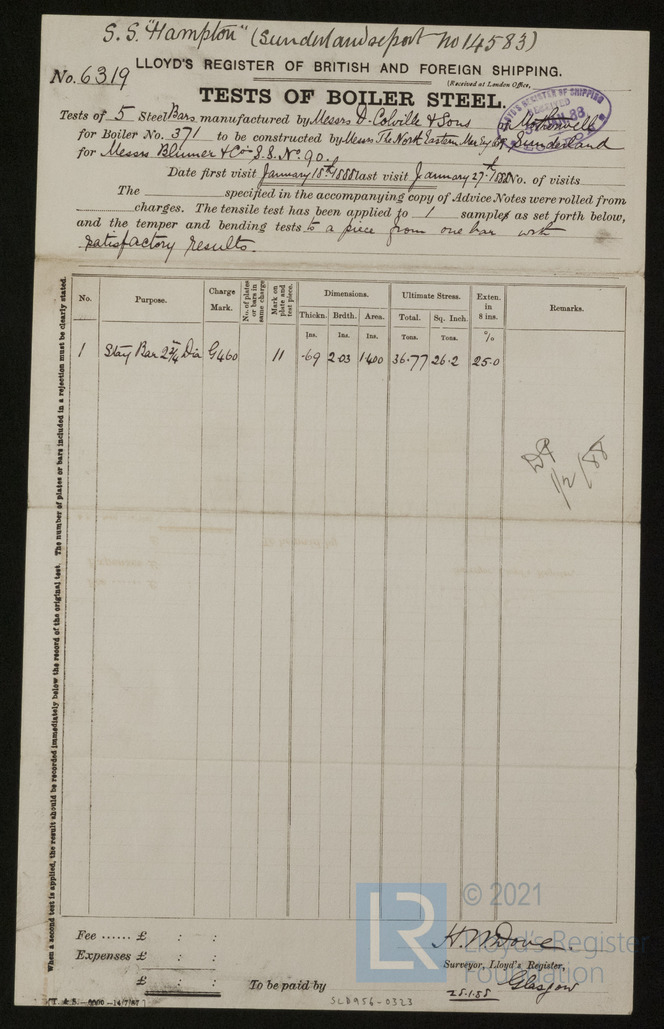 S.S. "Hampton" (Sunderland report No 14583)
No. 6319
LLOYD'S REGISTER OF BRITISH AND FOREIGN SHIPPING.
(Received at London Office,
TESTS OF BOILER STEEL.
Tests of 5 Steel Bars manufactured by Messrs D. Colville & Sons at Motherwell
for Boiler No. 371 to be constructed by Messrs The North Eastern Mar Eng Co Sunderland
for Messrs Blumer & Co S.S. No. 90.
Date first visit January 18th 1888 last visit January 27th 1888 No. of visits
The specified in the accompanying copy of Advice Notes were rolled from
charges. The tensile test has been applied to 1 samples as set forth below,
and the temper and bending tests to a piece from one bar with
satisfactory results
No. Purpose. Charge Mark. No. of plates or bars in same charge Mark on plate and test piece. Dimensions. Ultimate Stress. Exten. in 8 ins. Remarks.
Thickn. Brdth. Area. Total. Sq. Inch.
Ins. Ins. Ins. Tons. Tons. %
1 Stay Bar 2¾ Dia G460 11 .69 2.03 1.400 36.77 26.2 25.0
1/2/88
When a second test is applied, the result should be recorded immediately below the record of the original test. The number of plates or bars included in a rejection must be clearly stated.
© 2021
LR Lloyd's Register
Foundation
Fee ...... £ : :
Expenses £ : :
£ : :
To be paid by
H. W. Dove
Surveyor, Lloyd's Register,
Glasgow
28.1.88
SLD956-0323